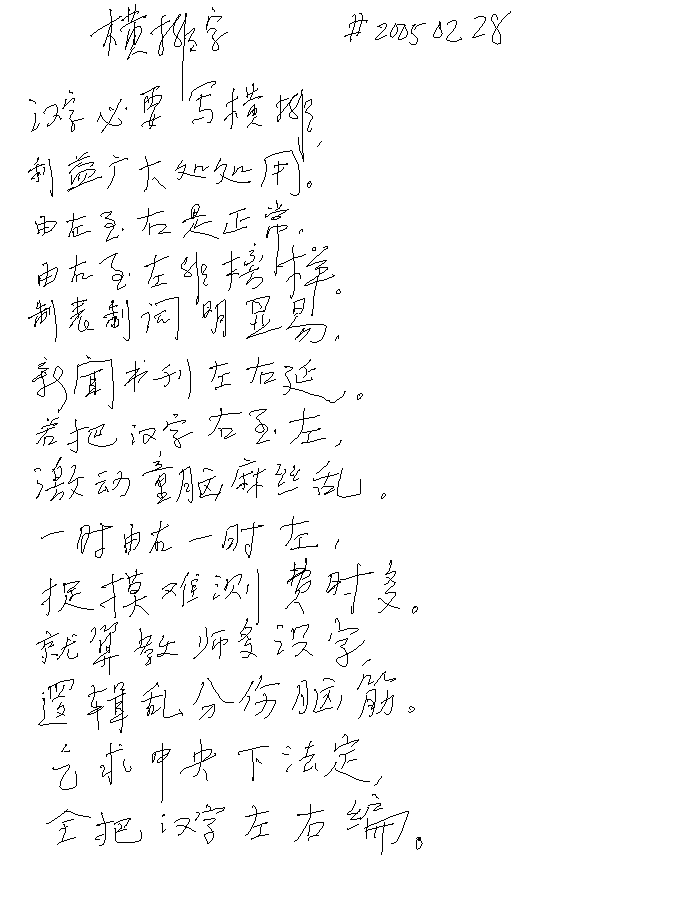 横排字 #2005 02 28
汉字必要写横排,
利益广大处处用。
由左至右是正常.
由右至左难榜样。
制表制词明显易.
新闻书刊左右延。
若把汉字右至左,
激动童脑麻丝乱。
一时由右一时左,
捉摸难测费时多。
就算教师多识字,
逻辑乱分伤脑筋。
乞求中央下法定,
全把汉字左右编。